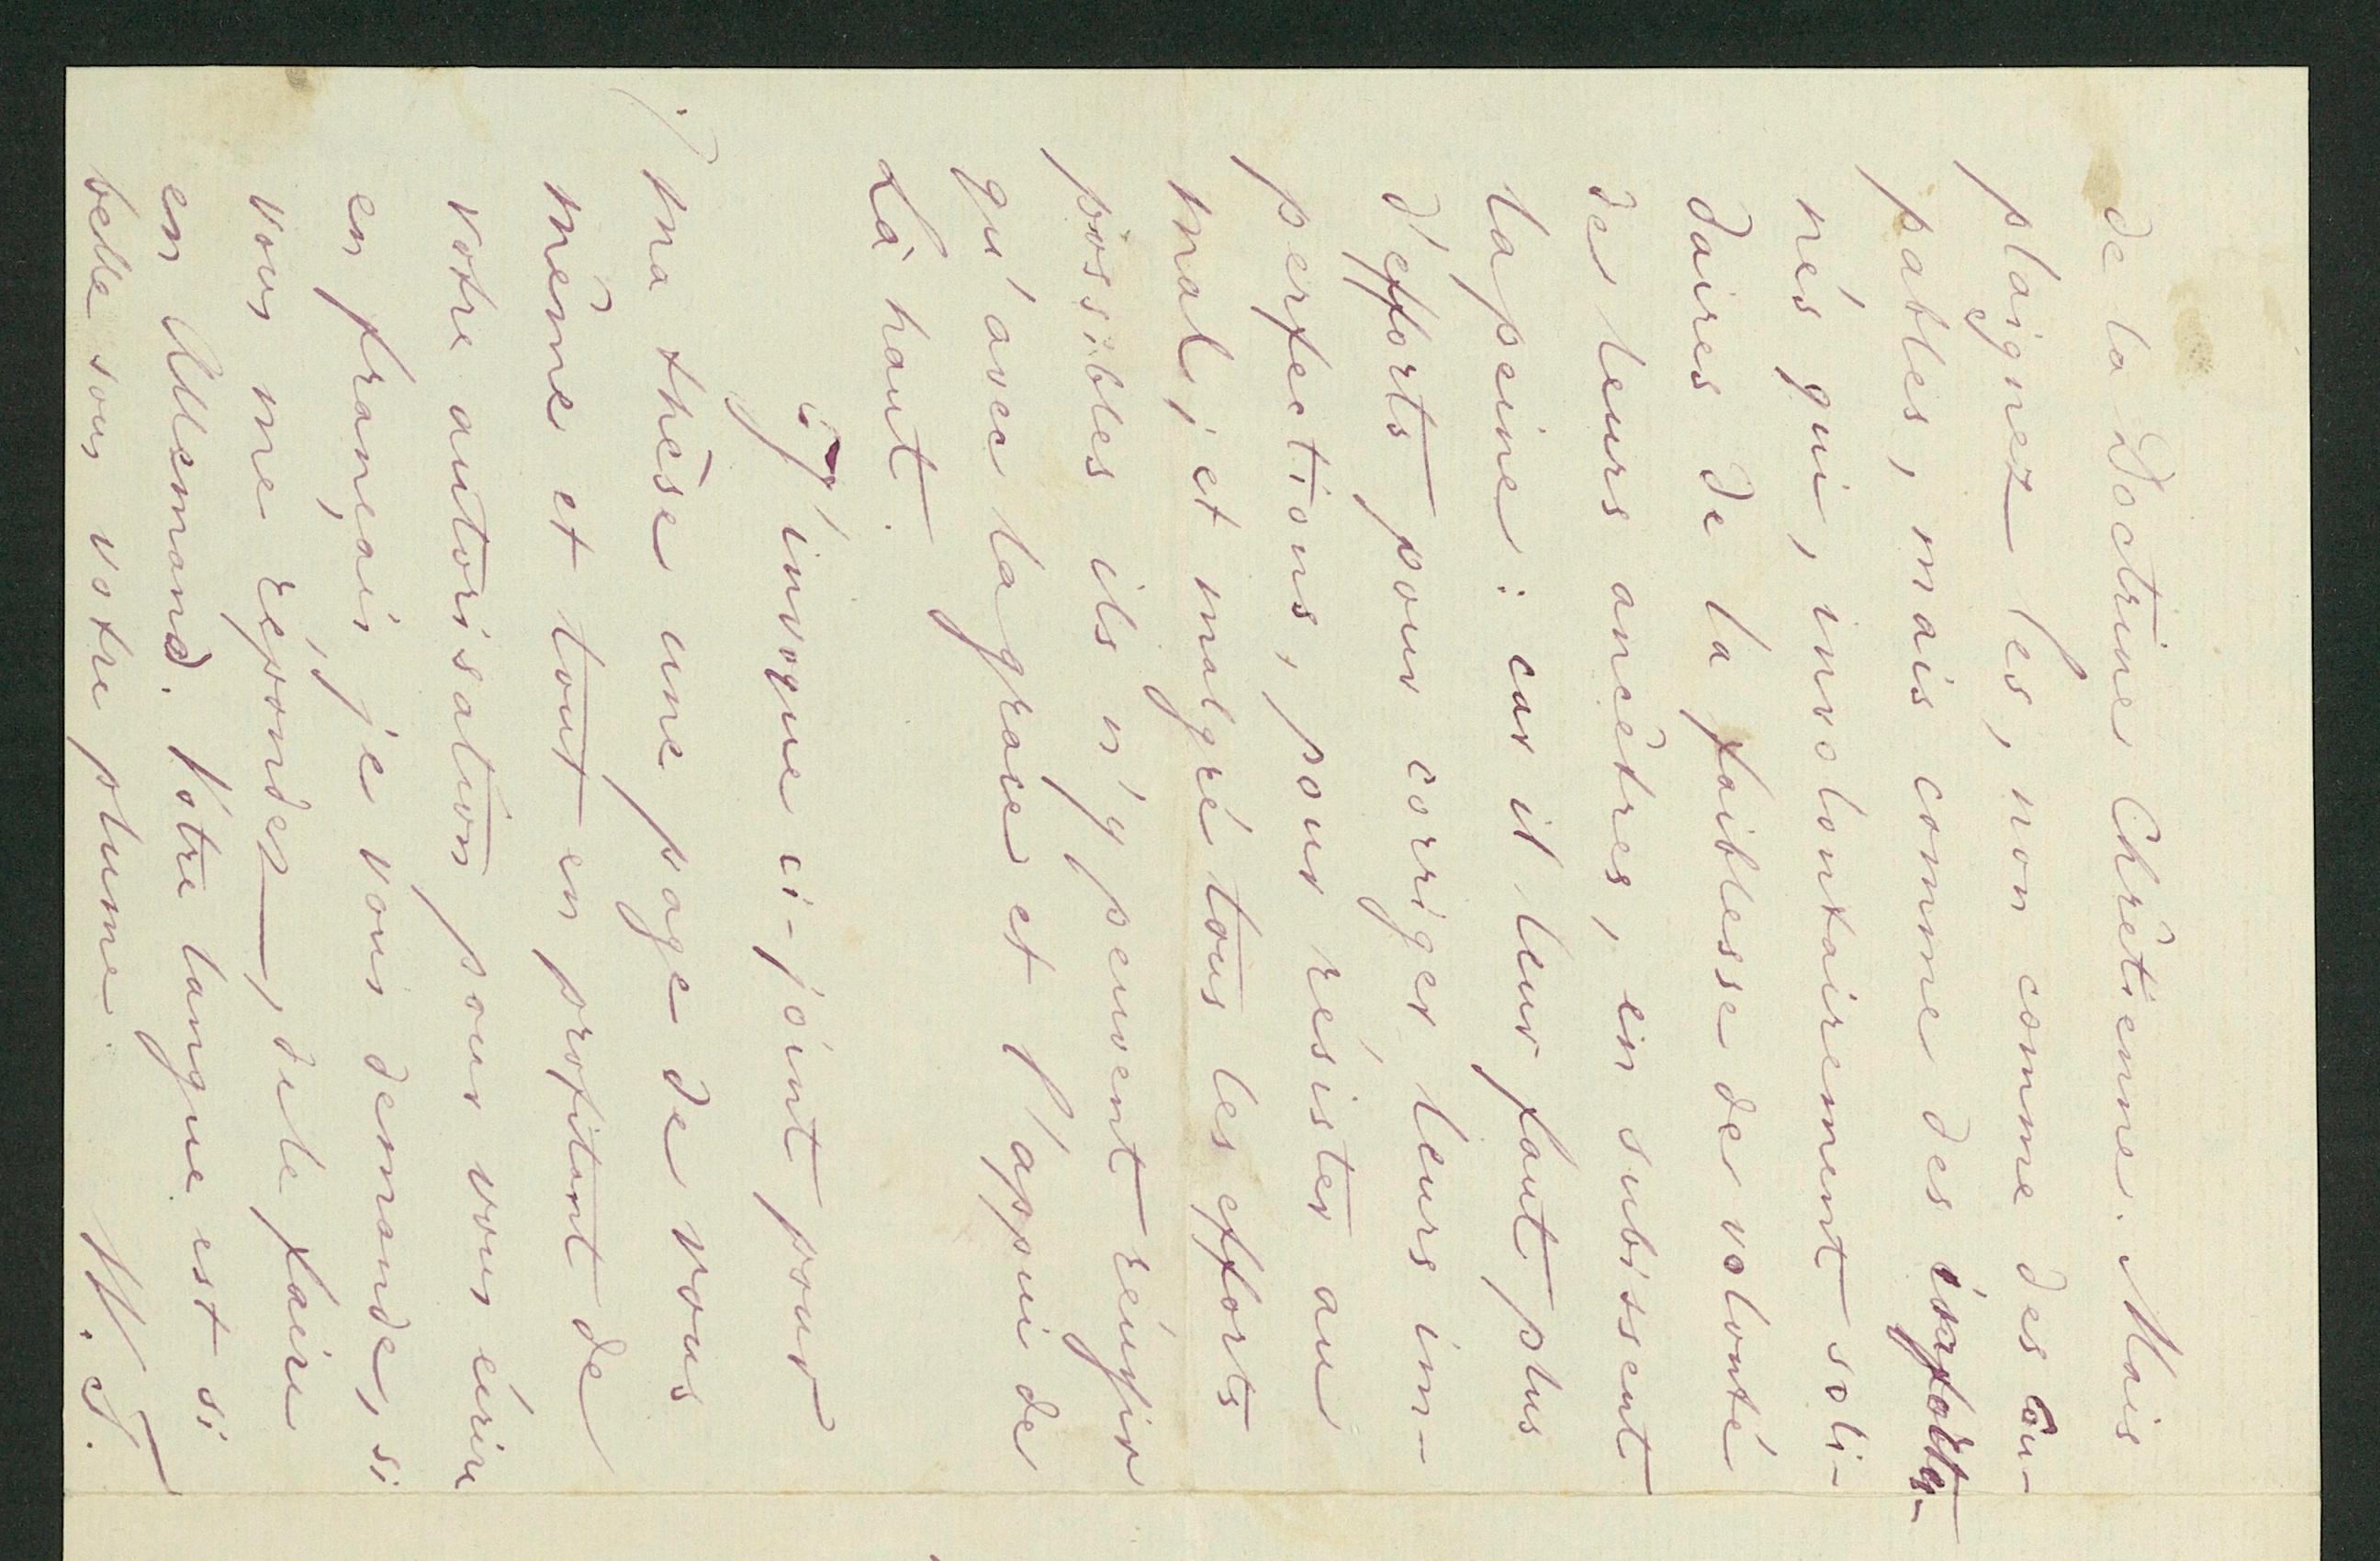 de la Doctrine Chrétienne. Mais
plaignez les, non comme des Cou-
pables, mais comme des infortu-
nés qui, involontairement soli-
daires de la faiblesse de volonté
de leurs ancêtres, en subissent
la peine: car il leur faut plus
d'efforts pour corriger leurs im-
perfections, pour résister au
mal; et malgré tous les efforts
possibles ils n'y peuvent réussir
qu'avec la grace et l'appui de
Là haut.
j'invoque ci-joint pour
ma thèse une page de vous
même et tout en profitant de
votre autorisation pour vous écrire
en français, je vous demande, si
vous me répondez, de le faire
en Allemand. Votre langue est si
belle sous votre plume.